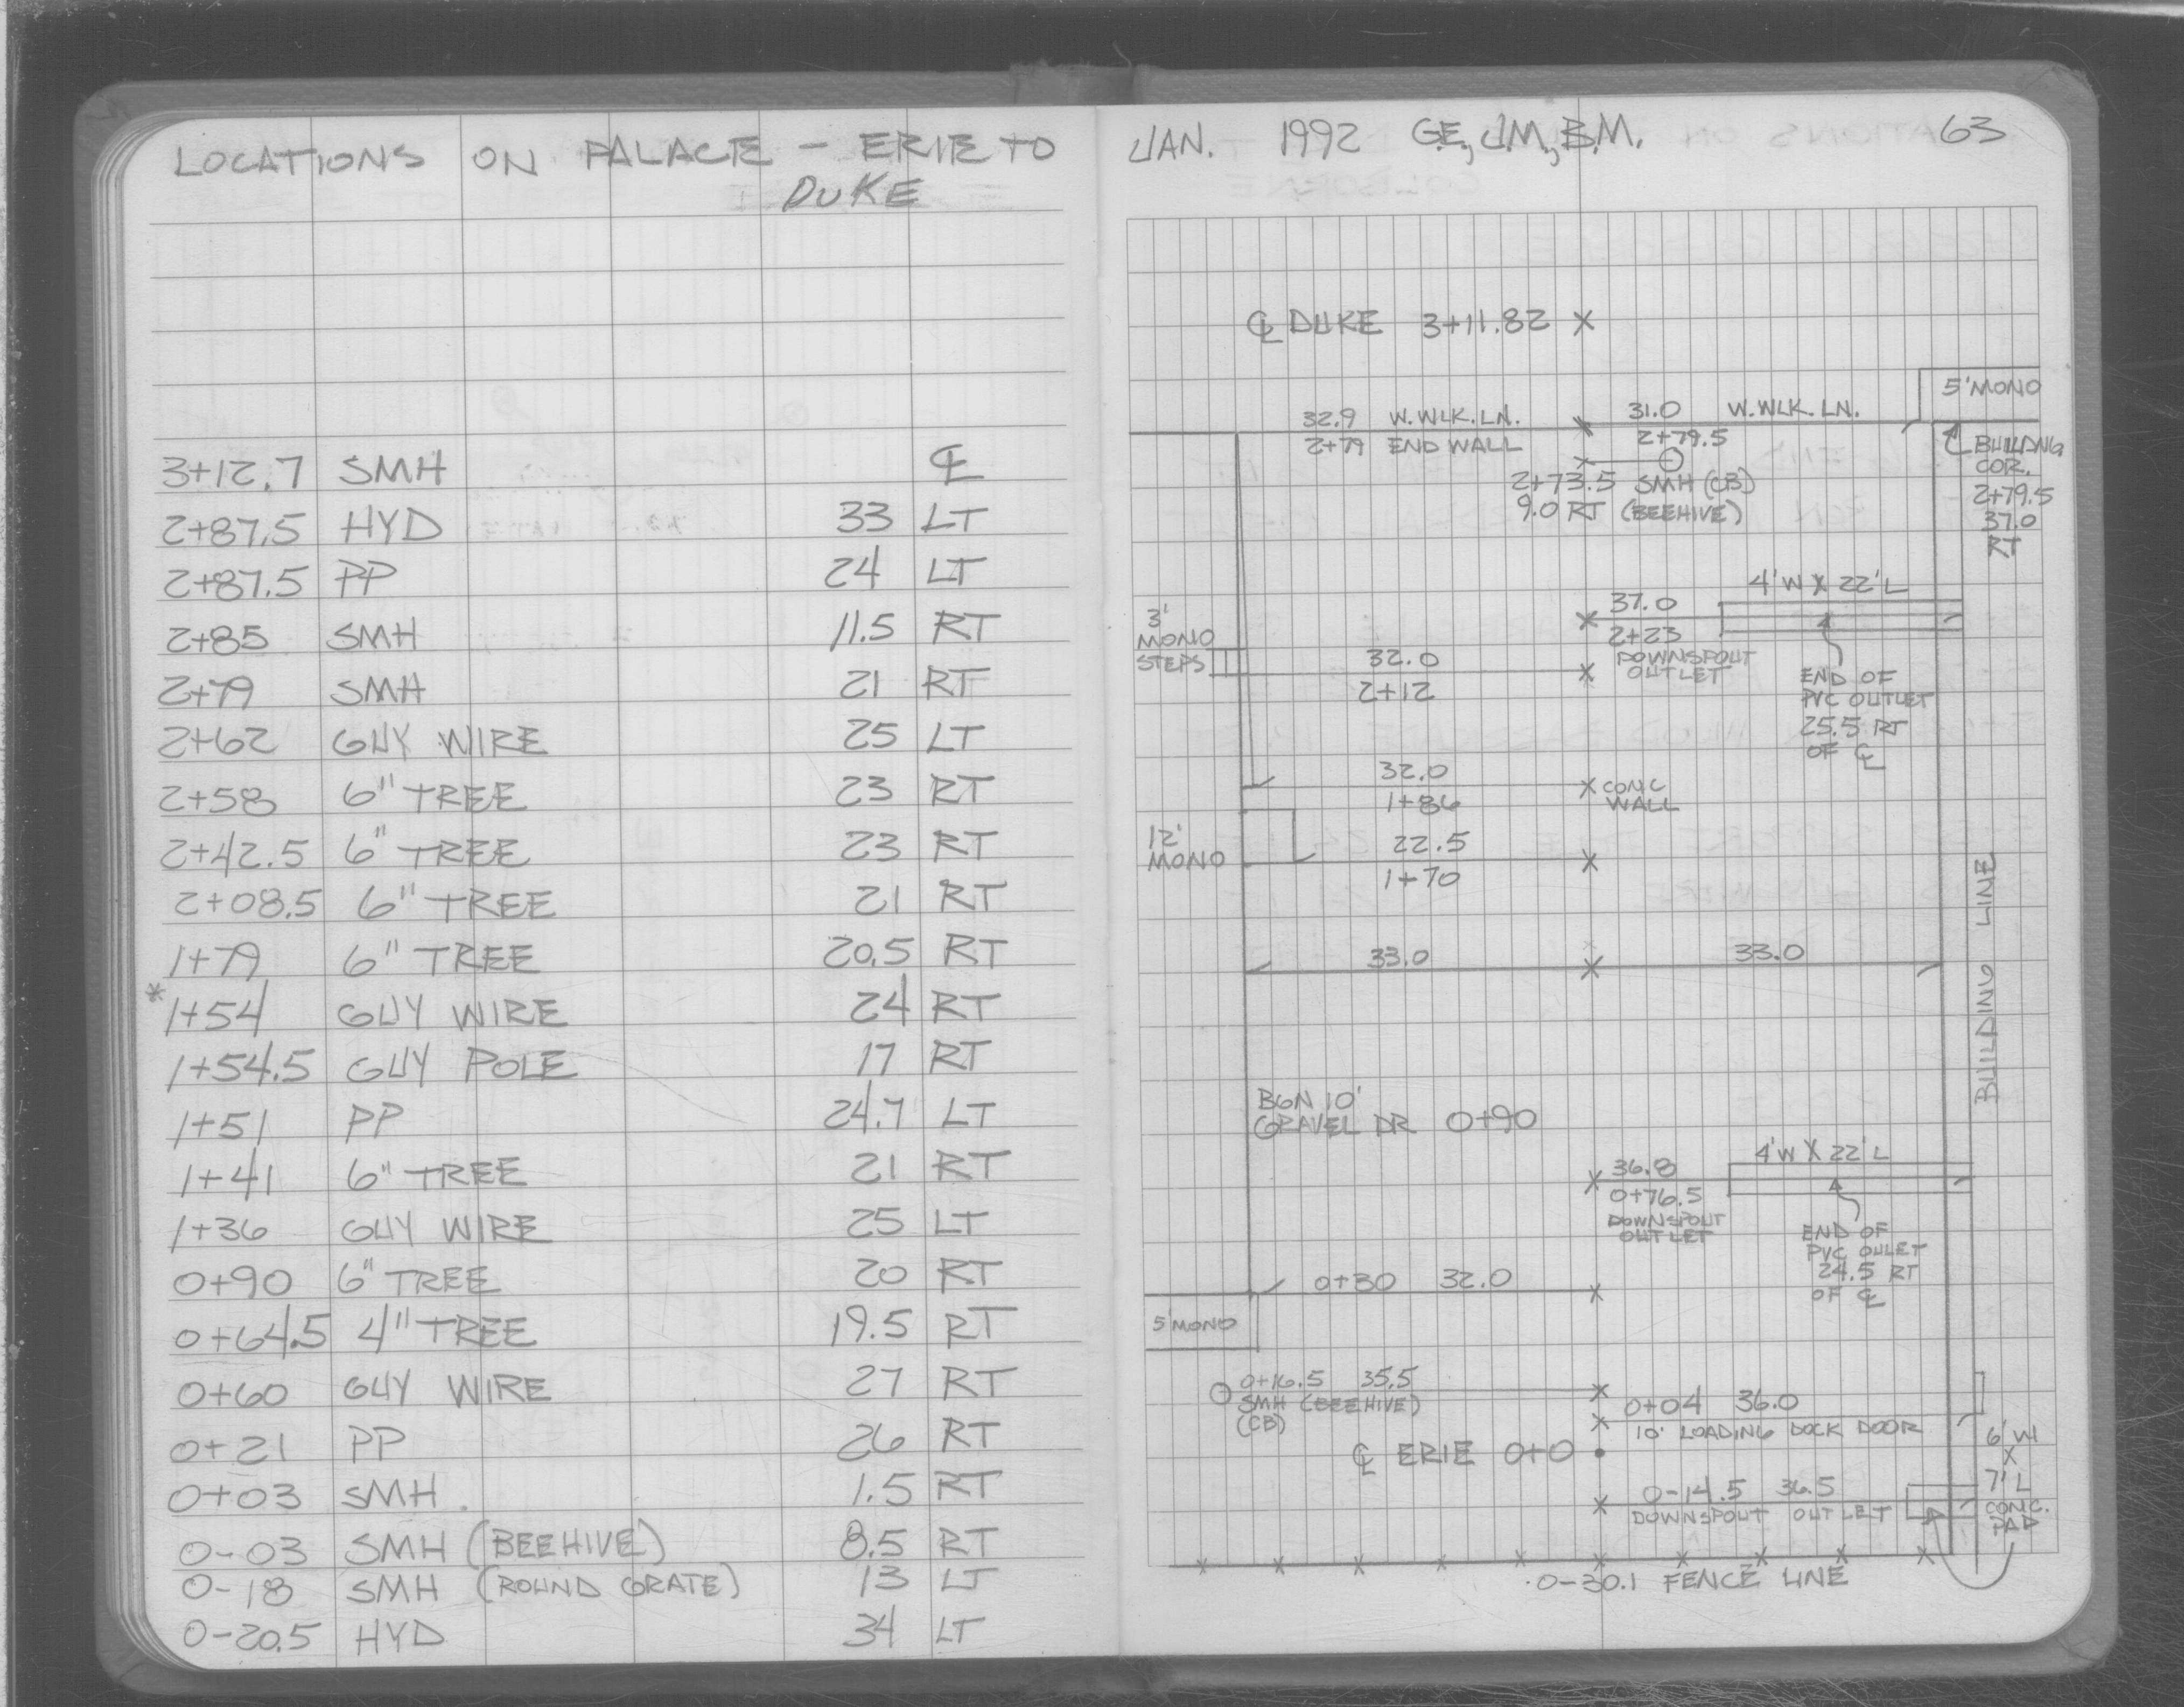 LOCATIONS ON PALACE - ERIE TO
DUKE
3+12.7 SMH ℄
2+87.5 HYD 33 LT
2+87.5 PP 24 LT
2+85 SMH 11.5 RT
2+79 SMH 21 RT
2+62 GUY WIRE 25 LT
2+58 6" TREE 23 RT
2+42.5 6" TREE 23 RT
2+08.5 6" TREE 21 RT
1+79 6" TREE 20.5 RT
*1+54 GUY WIRE 24 RT
1+54.5 GUY POLE 17 RT
1+51 PP 24.7 LT
1+41 6" TREE 21 RT
1+36 GUY WIRE 25 LT
0+90 6" TREE 20 RT
0+64.5 4" TREE 19.5 RT
0+60 GUY WIRE 27 RT
0+21 PP 26 RT
0+03 SMH 1.5 RT
0-03 SMH (BEEHIVE) 8.5 RT
0-18 SMH (ROUND GRATE) 13 LT
0-20.5 HYD 34 LT
JAN. 1992 G.E., J.M., B.M. 63
℄ DUKE 3+11.82
5' MONO
32.9 W. WLK. LN.
2+79 END WALL
31.0 W. WLK. LN.
2+79.5
BUILDNG
COR.
2+79.5
37.0
RT
2+73.5 SMH (CB)
9.0 RT (BEEHIVE)
4' W X 22' L
37.0
2+23
DOWNSPOUT
OUTLET
3'
MONO
STEPS
32.0
2+12
END OF
PVC OUTLET
25.5 RT
OF ℄
32.0
1+86
CONC
WALL
12'
MONO
22.5
1+70
33.0
33.0
BUILDING LINE
BGN 10'
GRAVEL DR 0+90
4' W X 22' L
36.8
0+76.5
DOWNSPOUT
OUTLET
END OF
PVC OULET
24.5 RT
OF ℄
0+30 32.0
5' MONO
0+16.5 35.5
SMH (BEEHIVE)
(CB)
0+04 36.0
10' LOADING DOCK DOOR
℄ ERIE 0+0
6' W
X
7' L
CONC.
PAD
0-14.5 36.5
DOWNSPOUT OUTLET
0-30.1 FENCE LINE